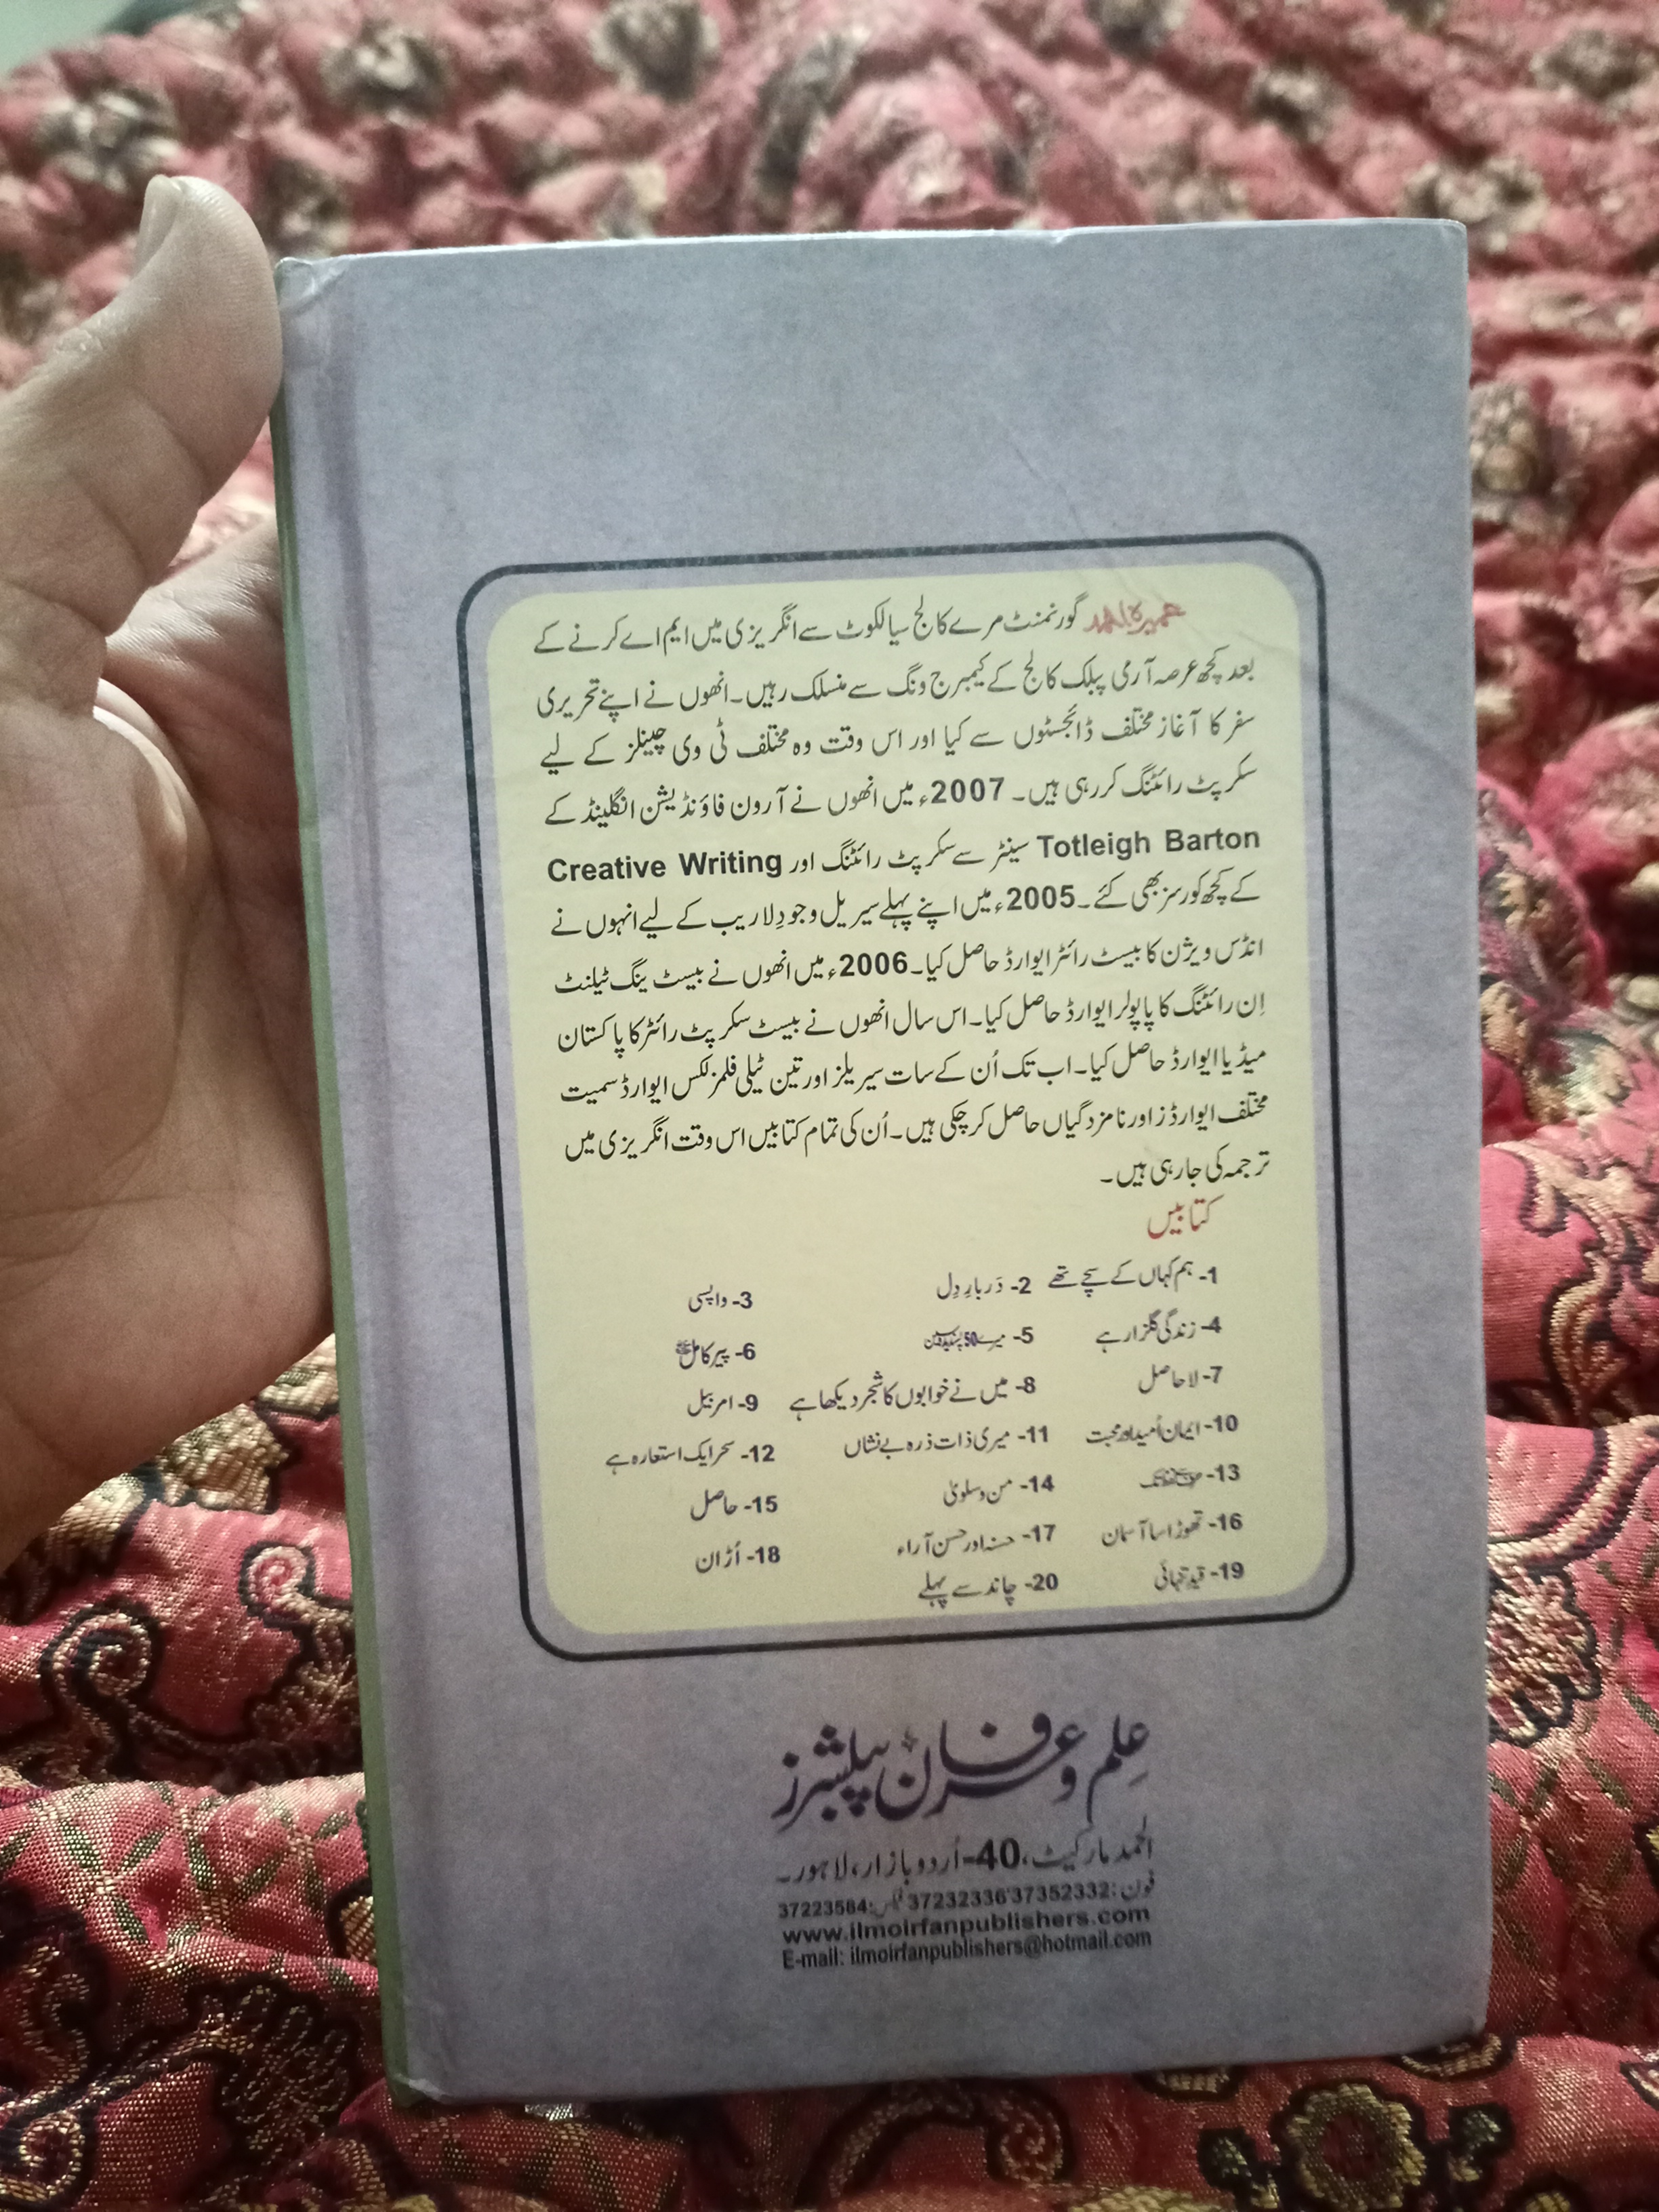 عمیرہ احمد گورنمنٹ مرے کالج سیالکوٹ سے انگریزی میں ایم اے کرنے کے
بعد کچھ عرصہ آرمی پبلک کالج کے کیمبرج ونگ سے منسلک رہیں۔ انھوں نے اپنے تحریری
سفر کا آغاز مختلف ڈائجسٹوں سے کیا اور اس وقت وہ مختلف ٹی وی چینلز کے لیے
سکرپٹ رائٹنگ کر رہی ہیں۔ 2007ء میں انھوں نے آرون فاؤنڈیشن انگلینڈ کے
Totleigh Barton سینٹر سے سکرپٹ رائٹنگ اور Creative Writing
کے کچھ کورسز بھی کئے۔ 2005ء میں اپنے پہلے سیریل وجودِ لاریب کے لیے انہوں نے
انڈس ویژن کا بیسٹ رائٹر ایوارڈ حاصل کیا۔ 2006ء میں انھوں نے بیسٹ ینگ ٹیلنٹ
اِن رائٹنگ کا پاپولر ایوارڈ حاصل کیا۔ اس سال انھوں نے بیسٹ سکرپٹ رائٹر کا پاکستان
میڈیا ایوارڈ حاصل کیا۔ اب تک اُن کے سات سیریلز اور تین ٹیلی فلمز لکس ایوارڈ سمیت
مختلف ایوارڈز اور نامزدگیاں حاصل کر چکی ہیں۔ اُن کی تمام کتابیں اس وقت انگریزی میں
ترجمہ کی جا رہی ہیں۔
کتابیں
1- ہم کہاں کے سچے تھے 2- دَربارِ دِل 3- واپسی
4- زندگی گلزار ہے 5- میرے 50 پسندیدہ سین 6- پیرِ کامل ﷺ
7- لاحاصل 8- میں نے خوابوں کا شجر دیکھا ہے 9- امر بیل
10- ایمان اُمید اور محبت 11- میری ذات ذرہ بے نشاں 12- سحر ایک استعارہ ہے
13- 14- من و سلویٰ 15- حاصل
16- تھوڑا سا آسمان 17- حسنہ اور حسن آراء 18- اُڑان
19- قیدِ تنہائی 20- چاند سے پہلے
عِلم و عرفان پبلشرز
الحمد مارکیٹ، 40-اُردو بازار، لاہور۔
فون: 37352332'37232336 فیکس: 37223584
www.ilmoirfanpublishers.com
E-mail: ilmoirfanpublishers@hotmail.com